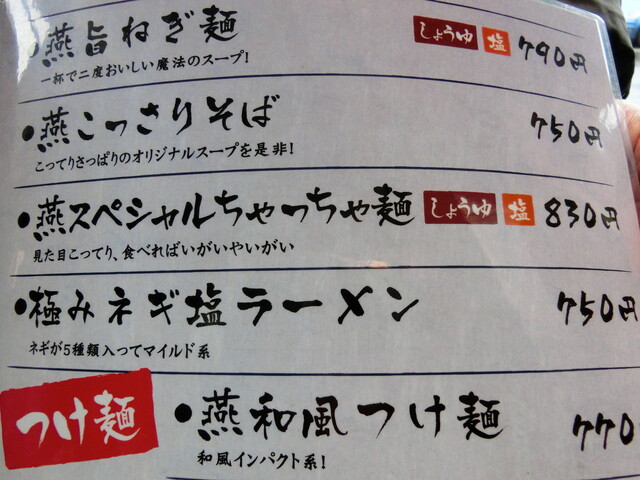 •燕旨ねぎ麺 しょうゆ 塩 790円
一杯で二度おいしい魔法のスープ!
•燕こっさりそば 750円
こってりさっぱりのオリジナルスープを是非!
•燕スペシャルちゃっちゃ麺 しょうゆ 塩 830円
見た目こってり、食べればいがいやいがい
•極みネギ塩ラーメン 750円
ネギが5種類入ってマイルド系
つけ麺 •燕和風つけ麺 770
和風インパクト系!